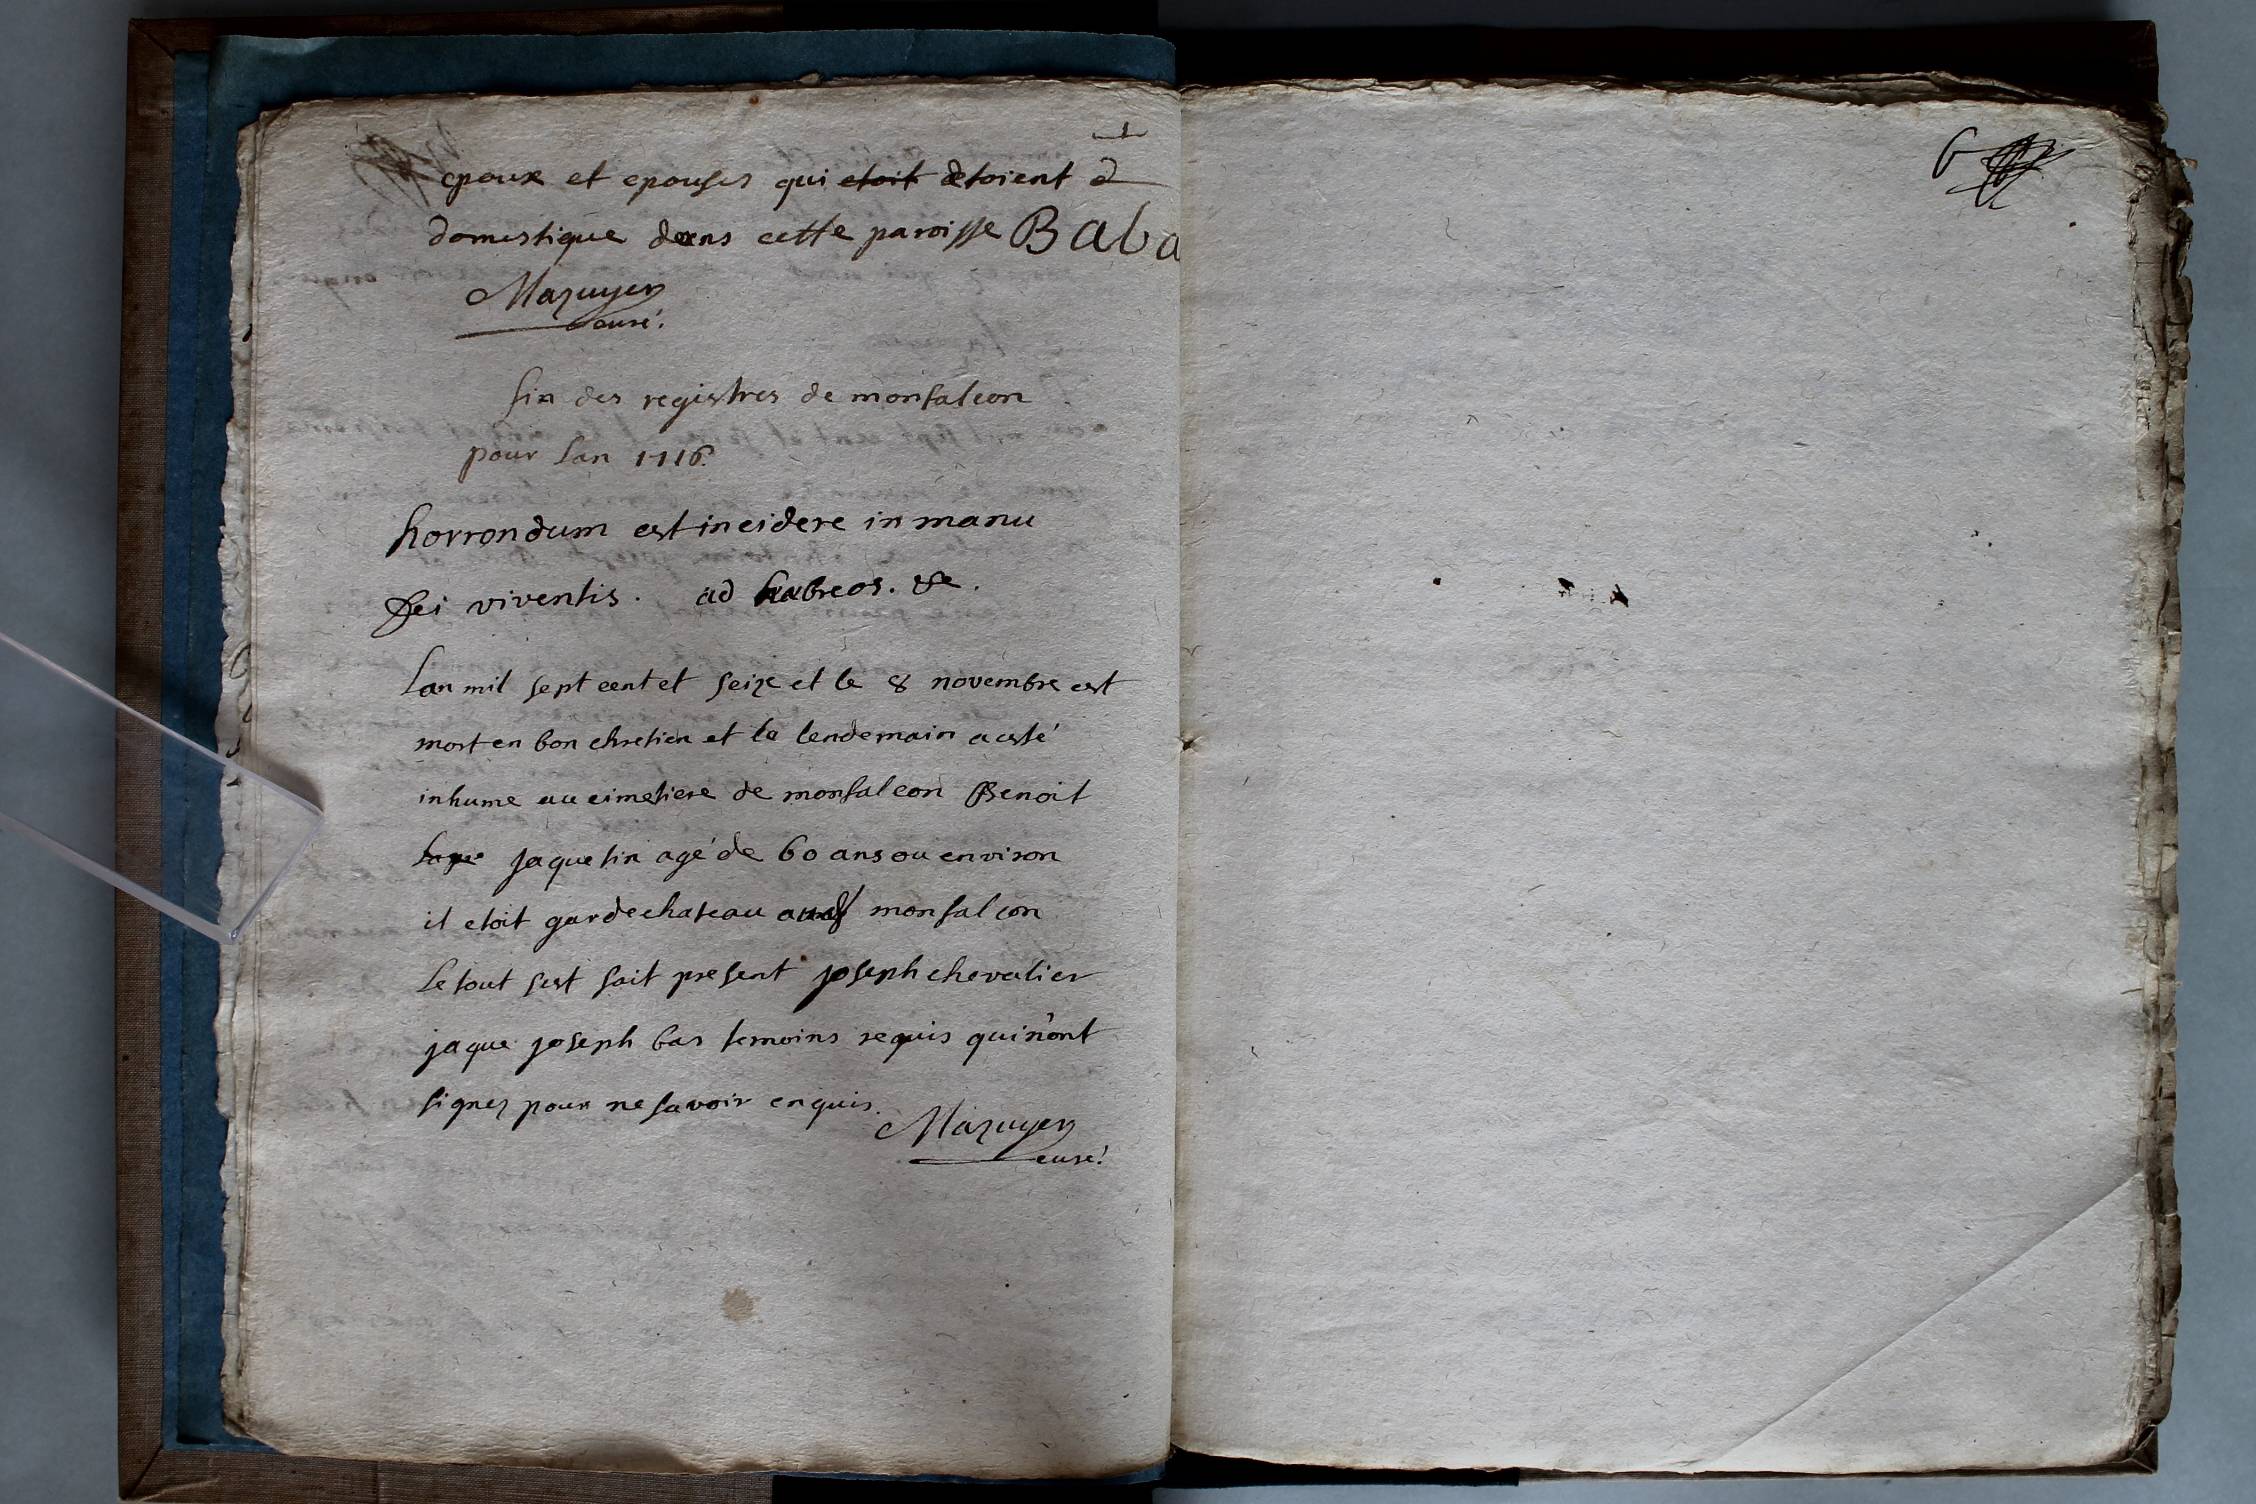 epoux et epouses qui etoit etoient d
domestique dans cette paroisse Baba
Mazuyer
curé.
fin des registres de monfalcon
pour lan 1716.
horrondum est incidere in manu
Dei viventis. ad habreos. &c.
Lan mil sept cent et seize et le 8 novembre est
mort en bon chretien et le lendemain a esté
inhume au cimetiere de monfalcon Benoit
jaquelin agé de 60 ans ou environ
il etoit garde chateau monfalcon
Le tout sest fait present joseph chevalier
jaque joseph bas temoins requis qui n'ont
signez pour ne savoir enquis.
Mazuyer
curé.
6